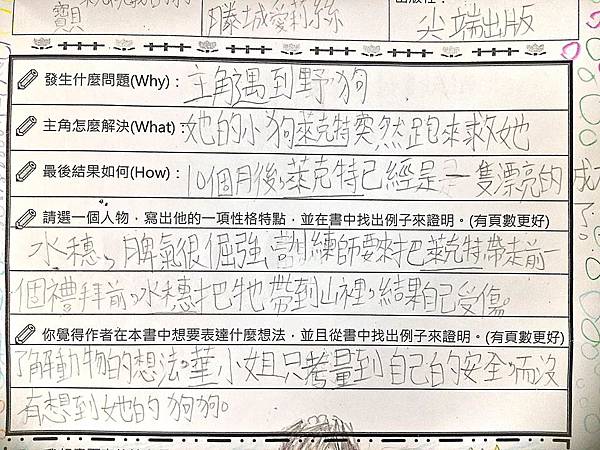 寶貝
滕城愛莉絲
尖端出版
發生什麼問題(Why)：主角遇到野狗
主角怎麼解決(What)：她的小狗萊克特突然跑來救她
最後結果如何(How)：10個月後，萊克特已經是一隻漂亮的成
了。
請選一個人物，寫出他的一項性格特點，並在書中找出例子來證明。(有頁數更好)
水穗、脾氣很倔強，訓練師要來把萊克特帶走前一
個禮拜前，水穗把牠帶到山裡，結果自己受傷。
你覺得作者在本書中想要表達什麼想法，並且從書中找出例子來證明。(有頁數更好)
了解動物的想法。華小姐只考量到自己的安全，而沒
有想到她的狗狗。